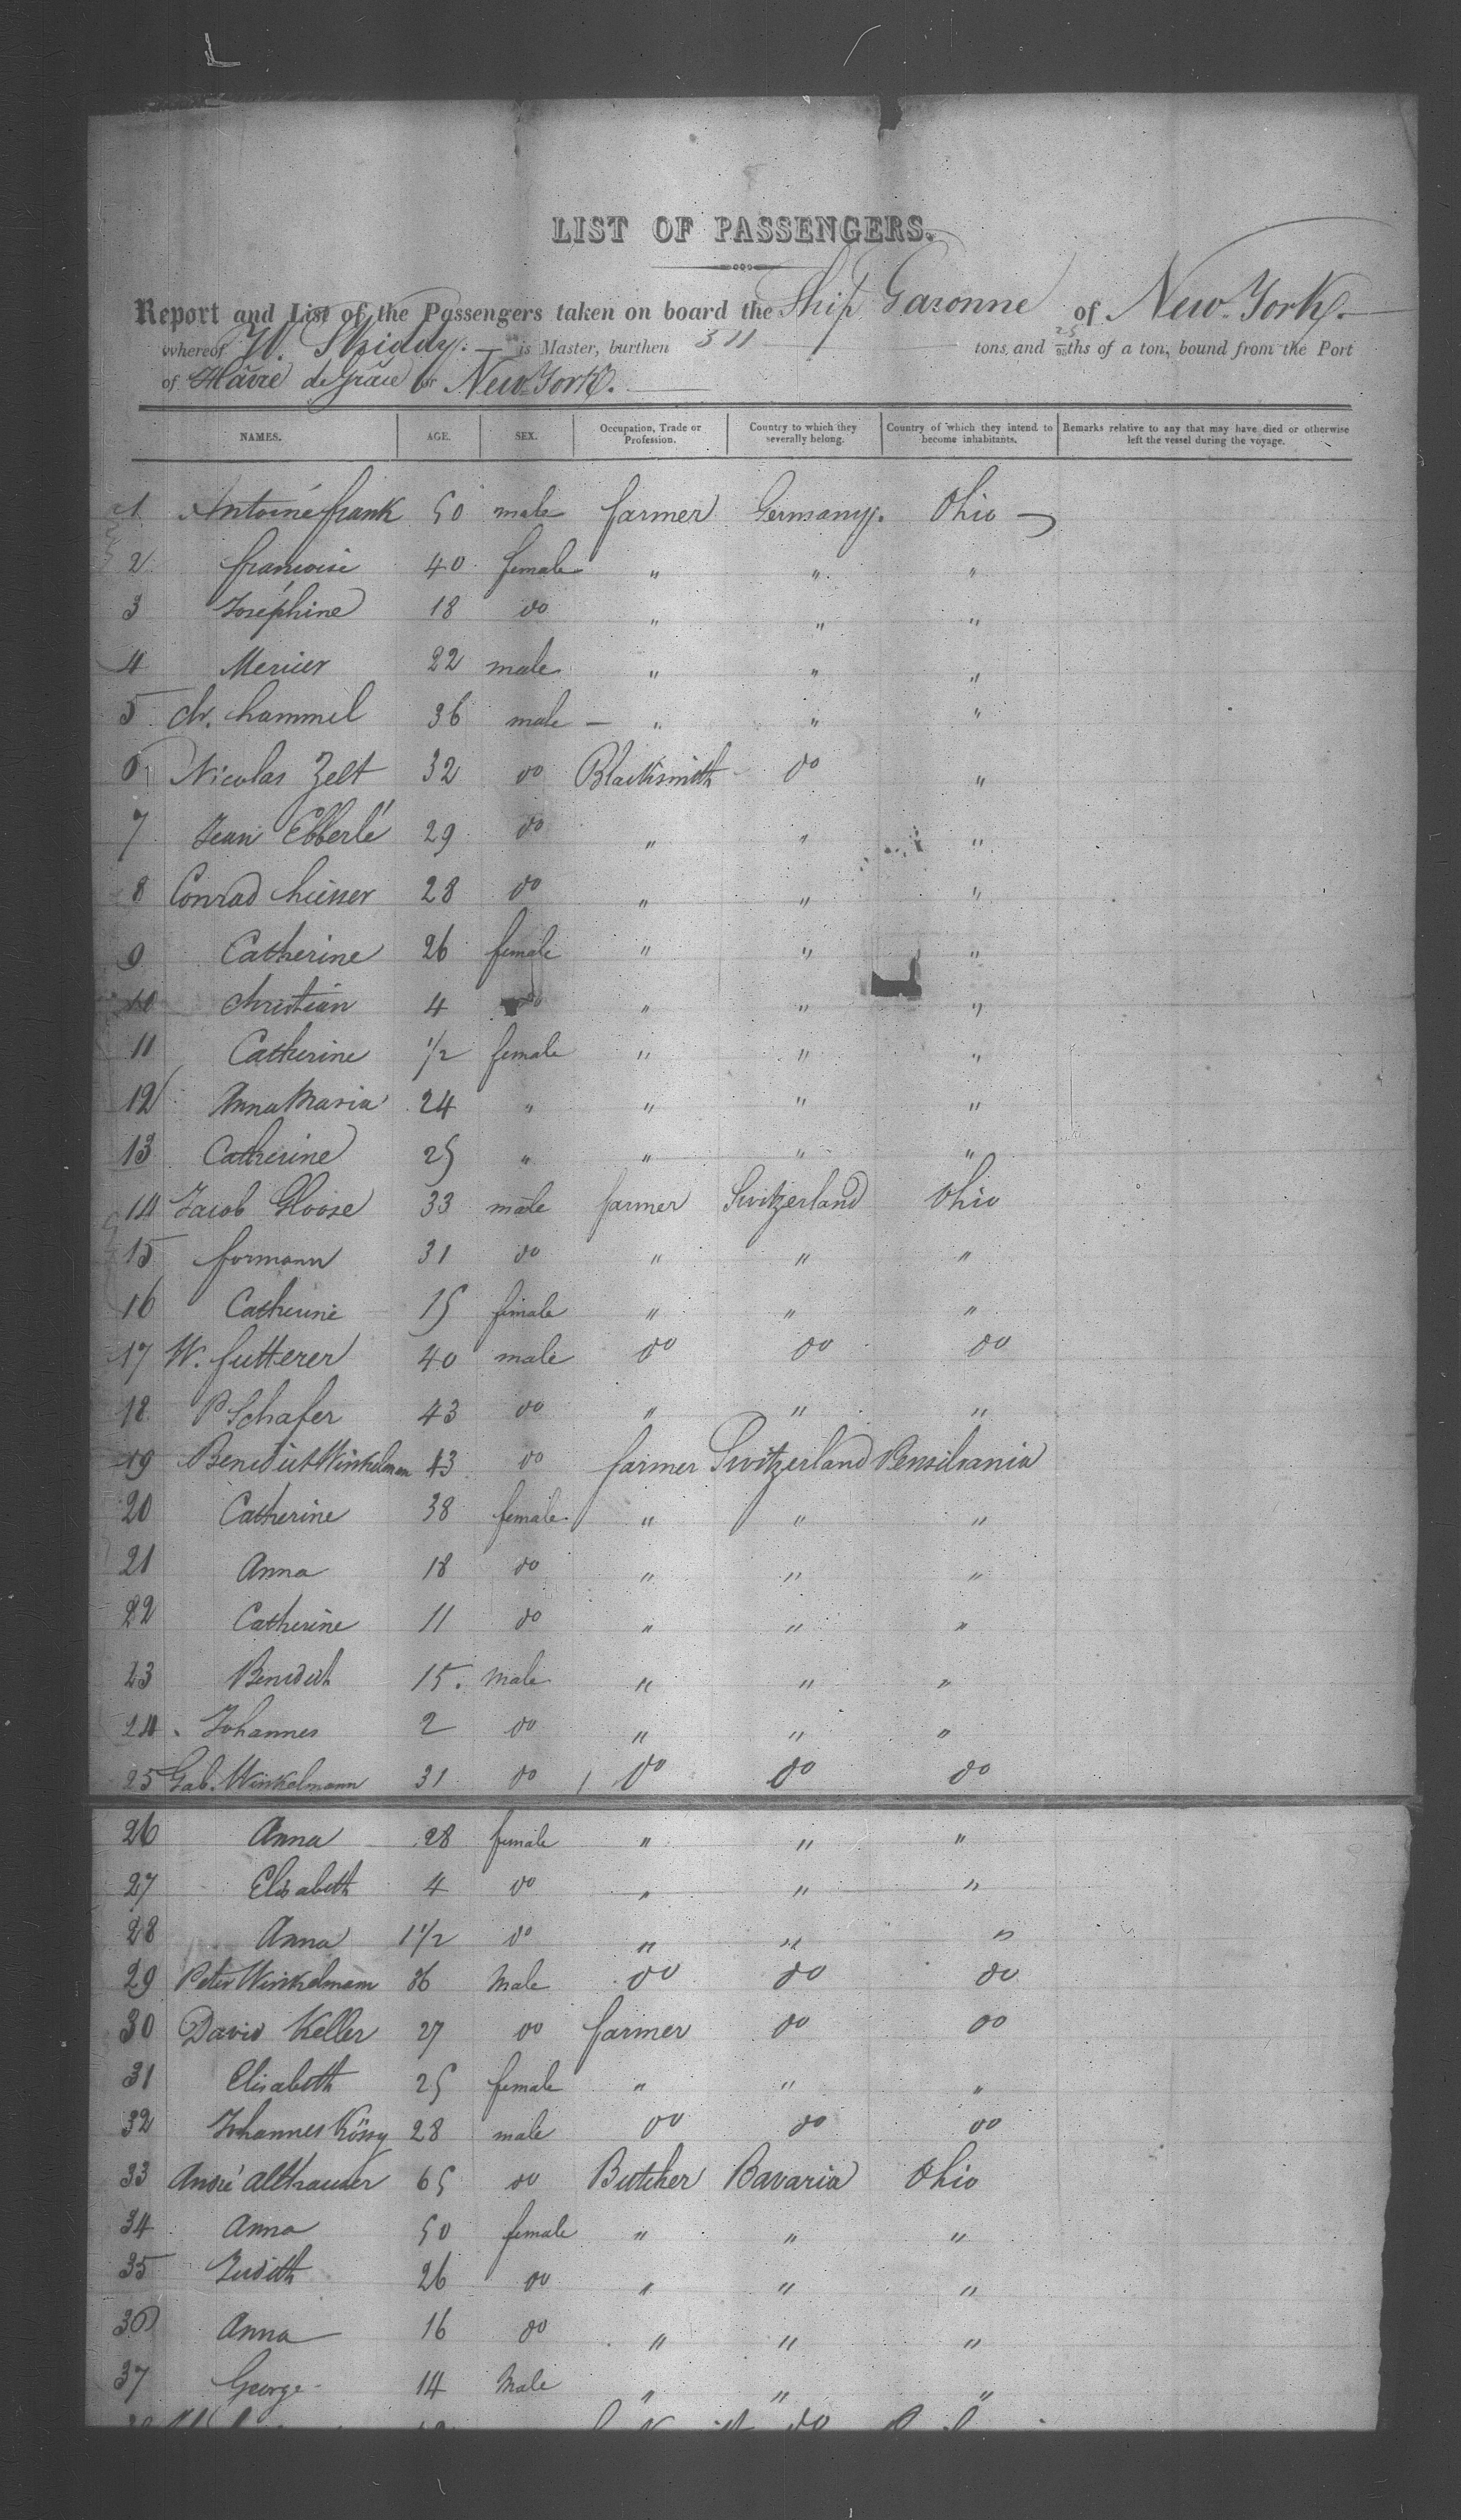 LIST OF PASSENGERS.
Report and List of the Passengers taken on board the Ship Garonne of New York.
whereof W. Skiddy. is Master, burthen 511 tons, and 25/95ths of a ton, bound from the Port
of Hâvre de Grâce for New York.
NAMES. AGE. SEX. Occupation, Trade or Profession. Country to which they severally belong. Country of which they intend to become inhabitants. Remarks relative to any that may have died or otherwise left the vessel during the voyage.
1 Antoine frank 50 male farmer Germany. Ohio
2 francoise 40 female " " "
3 Josephine 18 do " " "
4 Mercier 22 male " " "
5 Chr. hammel 36 male — " " "
6 Nicolas Zelt 32 do Blacksmith do "
7 Jean Ebberlé 29 do " " "
8 Conrad 28 do " " "
9 Catherine 26 female " " "
10 Christian 4 do " " "
11 Catherine 1/2 female " " "
12 Anna Maria 24 " " " "
13 Catherine 25 " " " "
14 Jacob Gloose 33 male farmer Switzerland Ohio
15 formann 31 do " " "
16 Catherine 15 female " " "
17 W. futterer 40 male do do do
18 P Schafer 43 do " " "
19 Benedict Winkelman 43 do farmer Switzerland Pensilvania
20 Catherine 38 female " " "
21 Anna 18 do " " "
22 Catherine 11 do " " "
23 Benedict 15. Male " " "
24 Johannes 2 do " " "
25 Gab. Winkelmann 31 do do do do
26 Anna 28 female " " "
27 Elisabeth 4 do " " "
28 Anna 1 1/2 do " " "
29 Peter Winkelmann 36 Male do do do
30 David Keller 27 do farmer do do
31 Elisabeth 25 female " " "
32 Johannes 28 male do do do
33 André Althauser 65 do Butcher Bavaria Ohio
34 Anna 50 female " " "
35 Judith 26 do " " "
36 Anna 16 do " " "
37 George 14 Male " " "